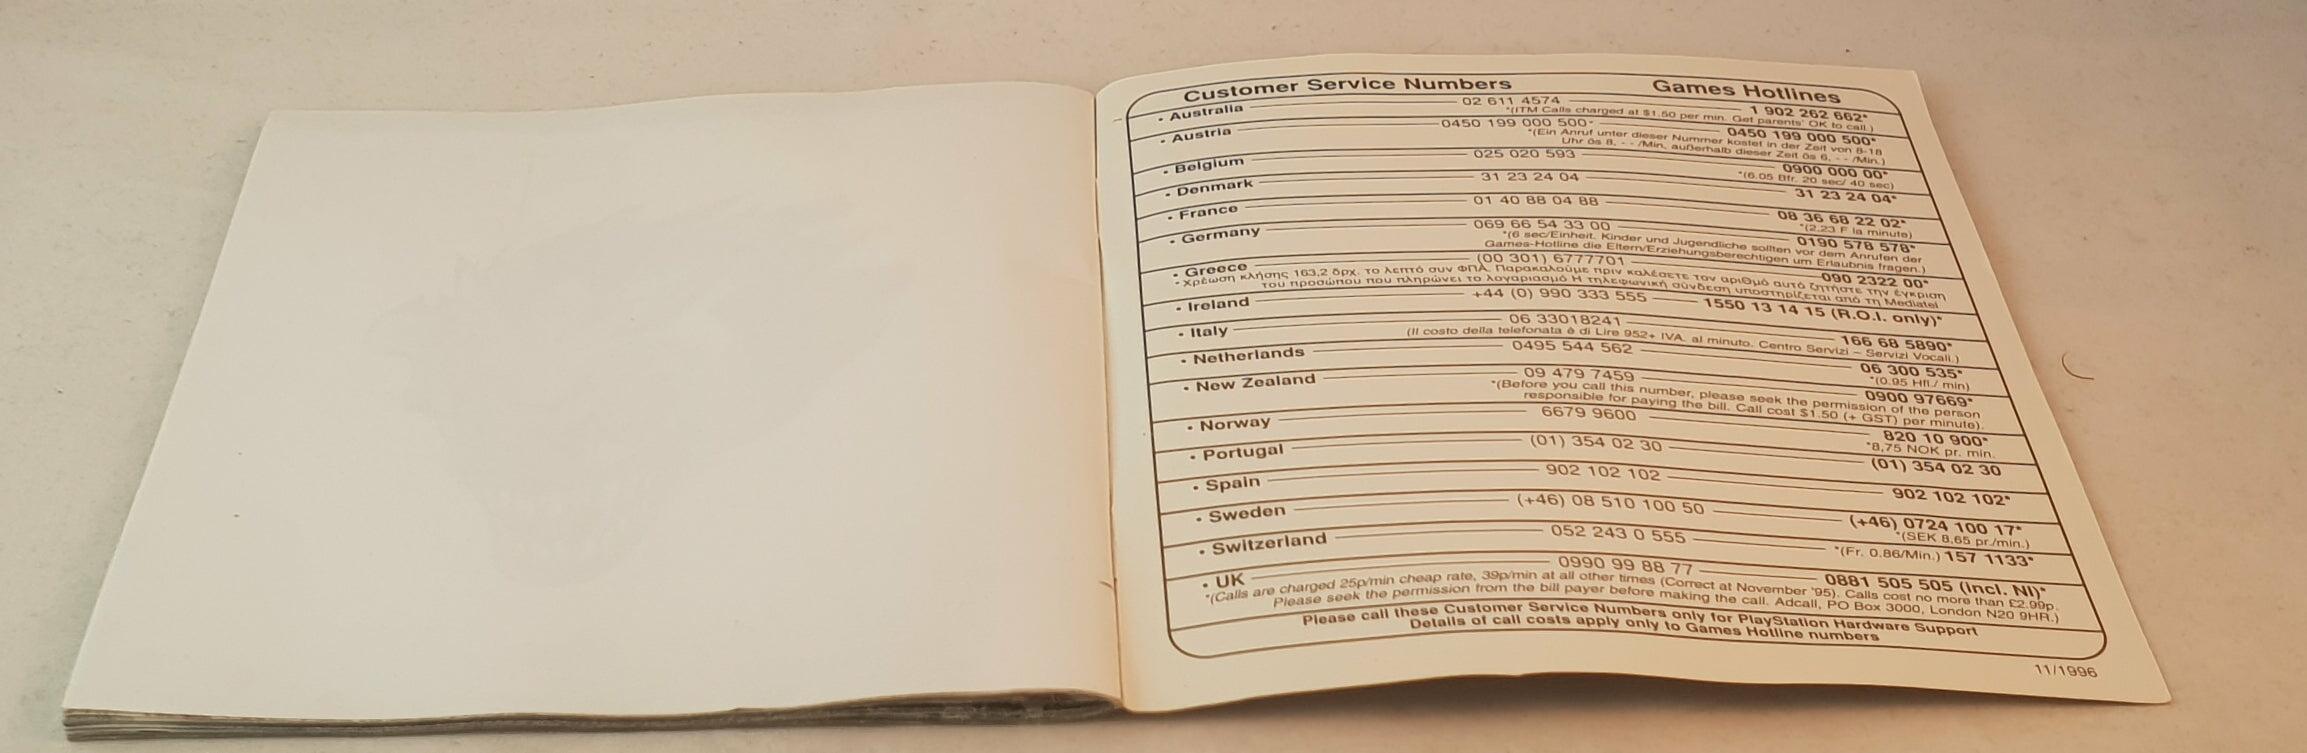 Customer Service Numbers Games Hotlines
• Australia 02 611 4574 1 902 262 662*
*(ITM Calls charged at $1.50 per min. Get parents' OK to call.)
• Austria 0450 199 000 500* 0450 199 000 500*
*(Ein Anruf unter dieser Nummer kostet in der Zeit von 8-18
Uhr ös 8, - - /Min, außerhalb dieser Zeit ös 6, - - /Min.)
• Belgium 025 020 593 0900 000 00*
*(6.05 Bfr. 20 sec/ 40 sec)
• Denmark 31 23 24 04 31 23 24 04*
• France 01 40 88 04 88 08 36 68 22 02*
*(2.23 F la minute)
• Germany 069 66 54 33 00 0190 578 578*
*(6 sec/Einheit. Kinder und Jugendliche sollten vor dem Anrufen der
Games-Hotline die Eltern/Erziehungsberechtigen um Erlaubnis fragen.)
• Greece (00 301) 6777701 090 2322 00*
* Χρέωση κλήσης 163,2 δρχ. το λεπτό συν ΦΠΑ. Παρακαλούμε πριν καλέσετε τον αριθμό αυτό ζητήστε την έγκριση
του προσώπου που πληρώνει το λογαριασμό Η τηλεφωνική σύνδεση υποστηρίζεται από τη Mediatel
• Ireland +44 (0) 990 333 555 1550 13 14 15 (R.O.I. only)*
• Italy 06 33018241 166 68 5890*
(Il costo della telefonata è di Lire 952+ IVA. al minuto. Centro Servizi – Servizi Vocali.)
• Netherlands 0495 544 562 06 300 535*
*(0.95 Hfl./ min)
• New Zealand 09 479 7459 0900 97669*
*(Before you call this number, please seek the permission of the person
responsible for paying the bill. Call cost $1.50 (+ GST) per minute).
• Norway 6679 9600 820 10 900*
*8,75 NOK pr. min.
• Portugal (01) 354 02 30 (01) 354 02 30
• Spain 902 102 102 902 102 102*
• Sweden (+46) 08 510 100 50 (+46) 0724 100 17*
*(SEK 8,65 pr./min.)
• Switzerland 052 243 0 555 *(Fr. 0.86/Min.) 157 1133*
• UK 0990 99 88 77 0881 505 505 (Incl. NI)*
*(Calls are charged 25p/min cheap rate, 39p/min at all other times (Correct at November '95). Calls cost no more than £2.99p.
Please seek the permission from the bill payer before making the call. Adcall, PO Box 3000, London N20 9HR.)
Please call these Customer Service Numbers only for PlayStation Hardware Support
Details of call costs apply only to Games Hotline numbers
11/1996